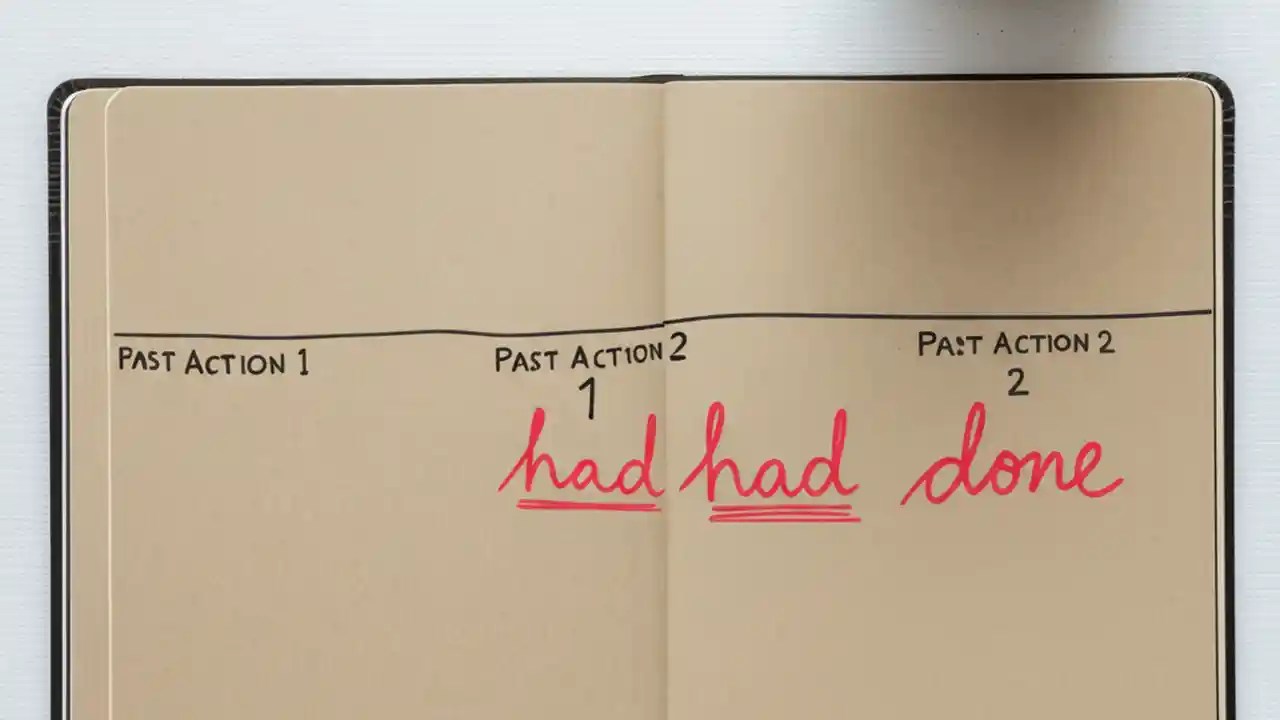 PAST ACTION 1 PAST ACTION 2 PAST ACTION 2
1 2
had had done